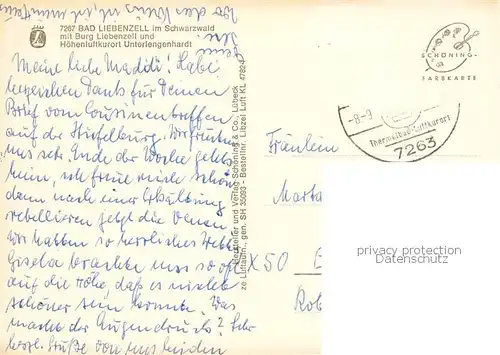 7267 BAD LIEBENZELL im Schwarzwald
mit Burg Liebenzell und
Höhenluftkurort Unterlengenhardt
SCHÖNING
FARBKARTE
-8-9
Thermalbad+Luftkurort
7263
Meine liebe Madidi! Hab
herzlichen Dank für Deinen
Brief vom Cousinentreffen
auf der Stiefelburg. Wir freuten
uns sehr. Ende der Woche geht's
heim, ich freue mich schon
denn nach einer Erkältung
rebellieren jetzt die Venen
Wir hatten so herrliches Wetter
Gisela brachte uns so oft
auf die Höhe, daß es nicht
schöner sein konnte. Was
macht der Augendruck? Sehr
herzl. Grüße von uns beiden
Fräulein
Marta
X50
Rob
Hersteller und Verlag Schöning & Co., Lübeck
ze Luftaufn., gen. SH 35093 - Bestellnr. Liezel Luft KL 4782
privacy protection
Datenschutz